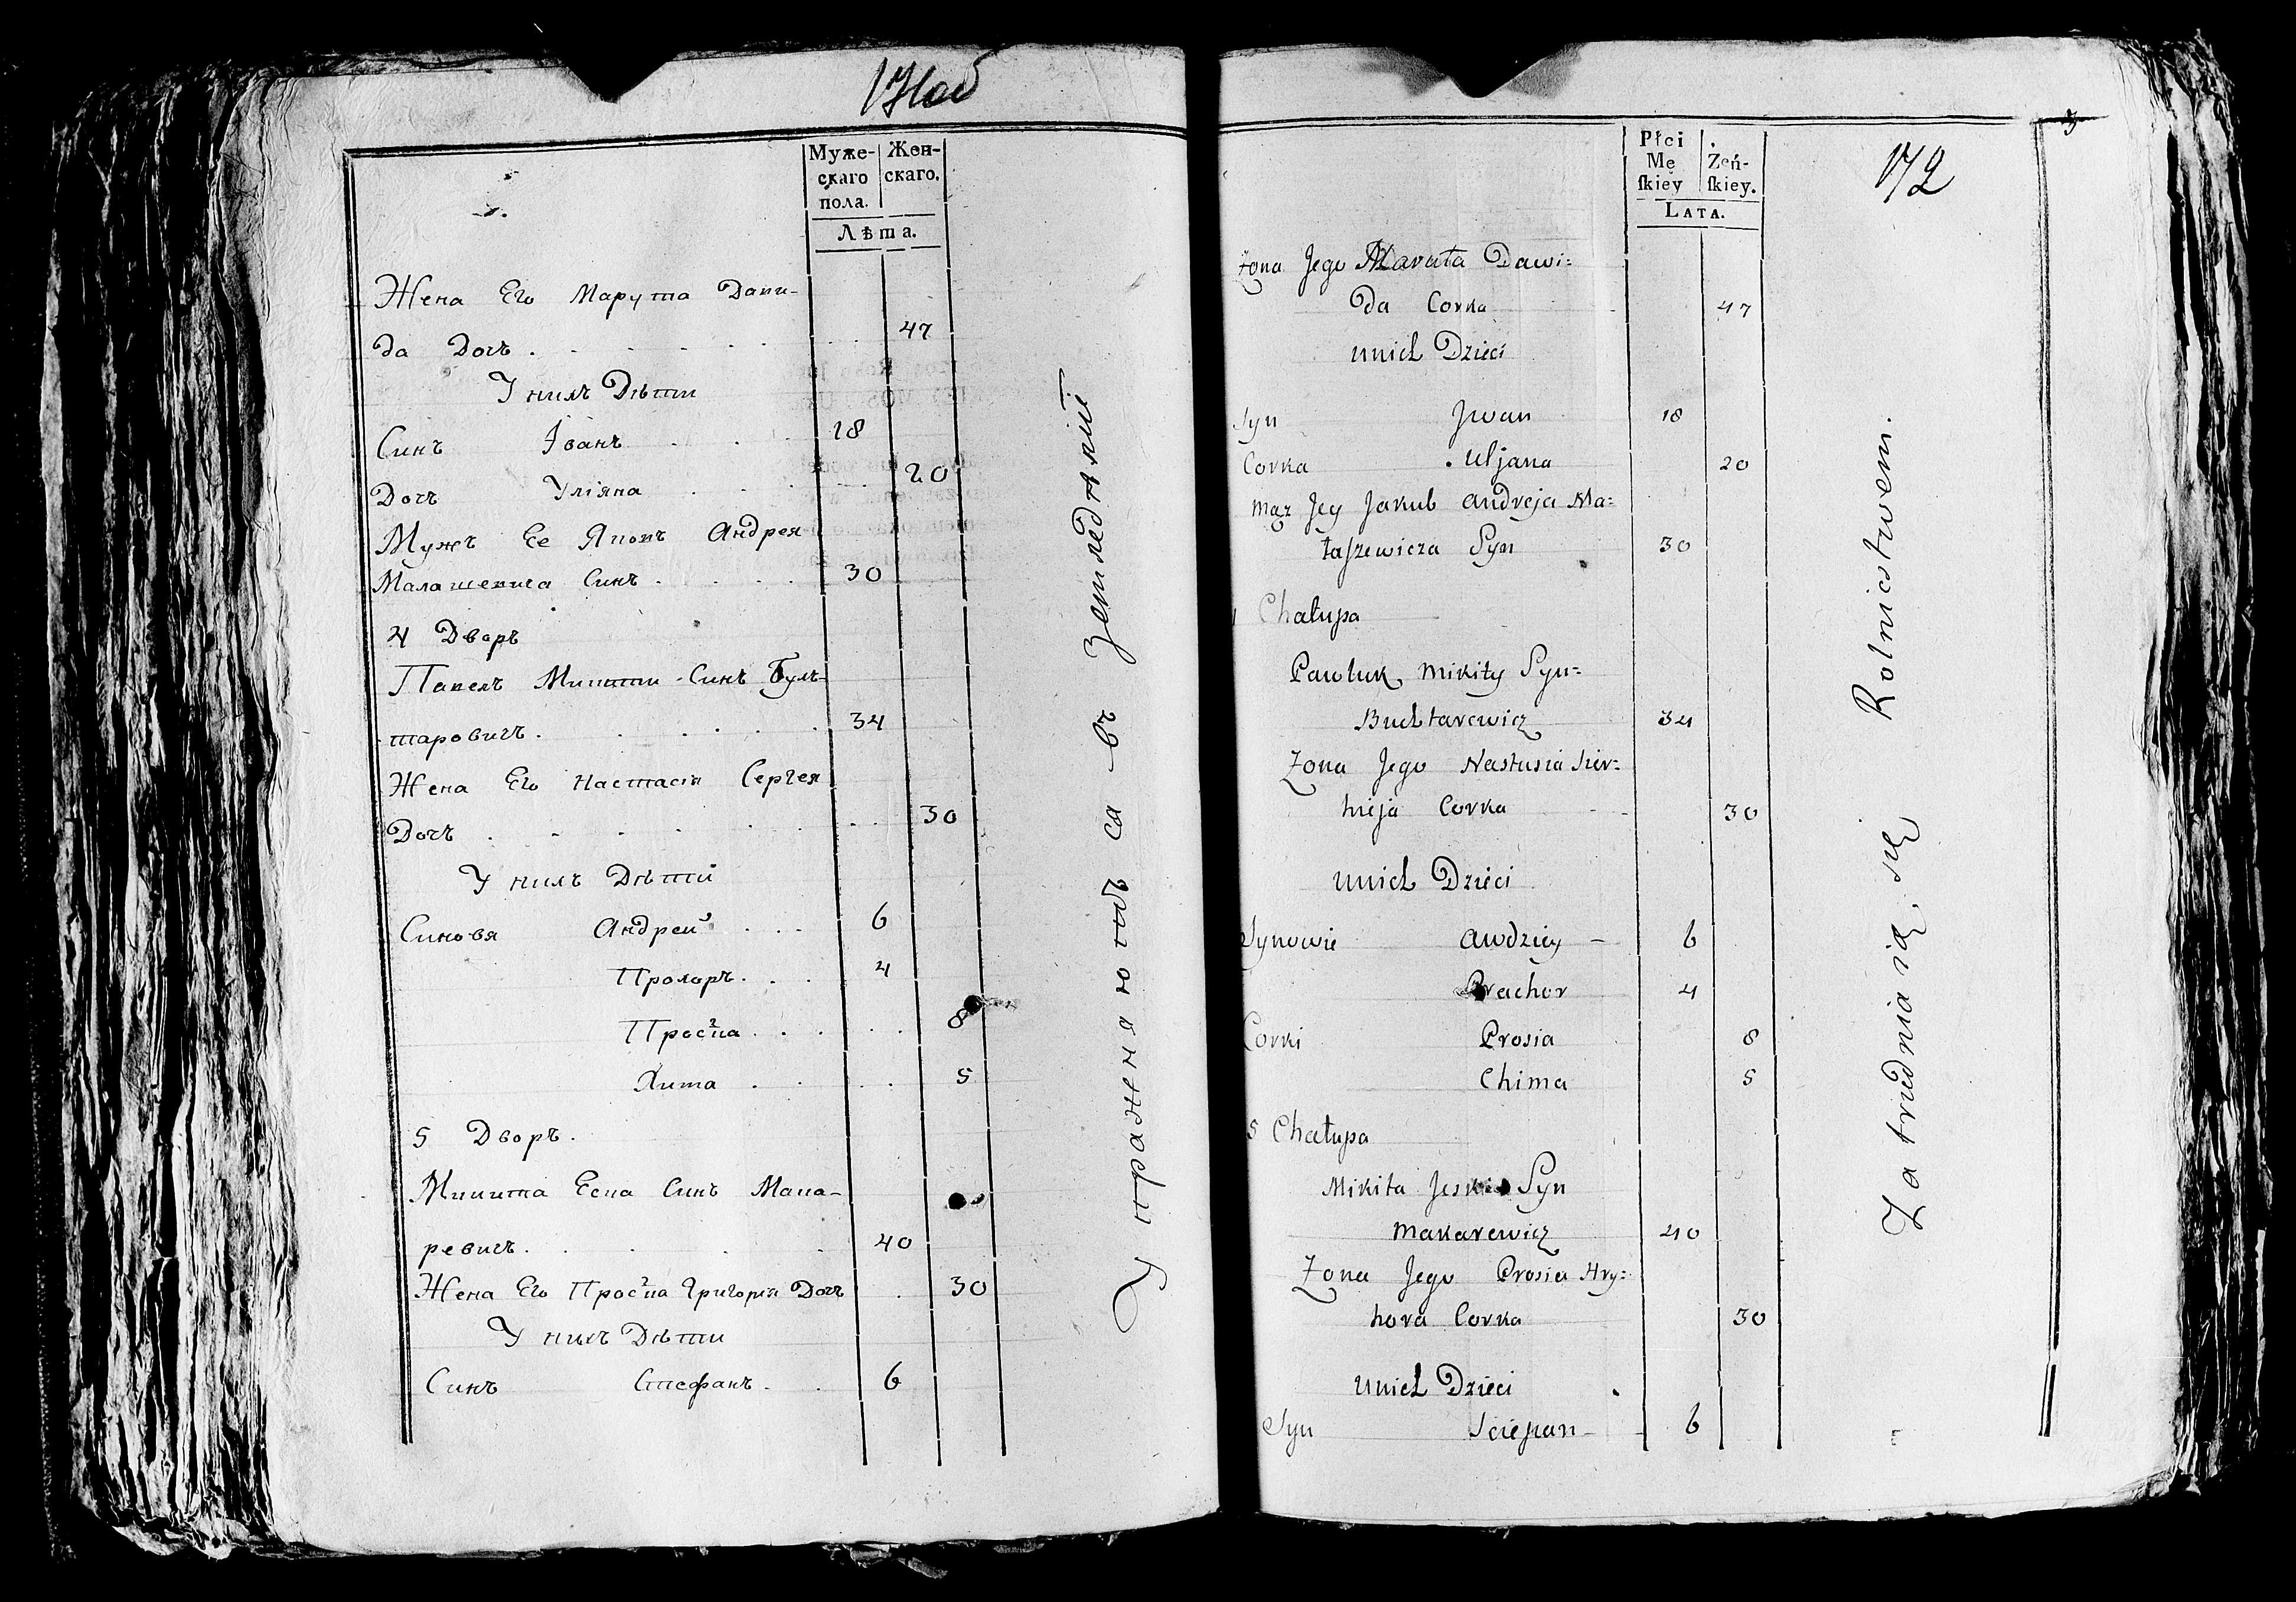 171об
Муже- Жен-
скаго скаго.
пола.
Лѣта.
Жена Его Марута Дави-
да Дочъ . 47
У нихъ Дѣти
Синъ Іванъ 18
Дочъ Уліяна 20
Мужъ Ее Яковъ Андрея
Малашевича Синъ . 30
4 Дворъ
Павелъ Микиты Синъ Бух-
таровичъ . 34
Жена Его Настасія Сергея
Дочъ . 30
У нихъ Дѣти
Синовя Андрей 6
Прохоръ . 4
Проска . 8
Хима . 5
5 Дворъ .
Микита Еска Синъ Мака-
ревичъ . 40
Жена Его Проска Григорія Дочъ 30
У нихъ Дѣти
Синъ Стефанъ . 6
Упражняются въ Земледѣліи
172
Płci
Mę Żeń-
ſkiey ſkiey.
LATA.
Żona Jego Maruta Dawi=
da Corka 47
unich Dzieci
Syn Jwan 18
Corka Uljana 20
mąz Jey Jakub Andreja Ma=
łaszewicza Syn 30
4 Chałupa
Pawluk Mikity Syn=
Buchtarewicz 34
Żona Jego Nastusia Sier=
hieja Corka 30
unich Dzieci
Synowie Awdziey 6
Prachor 4
Corki Prosia 8
Chima 5
5 Chałupa
Mikita Jeski Syn
Makarewicz 40
Żona Jego Prosia Hry=
hora Corka 30
unich Dzieci
Syn Sciepan 6
Zatrudniaią się Rolnictwem.